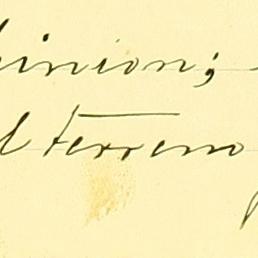 pinion;
el terreno